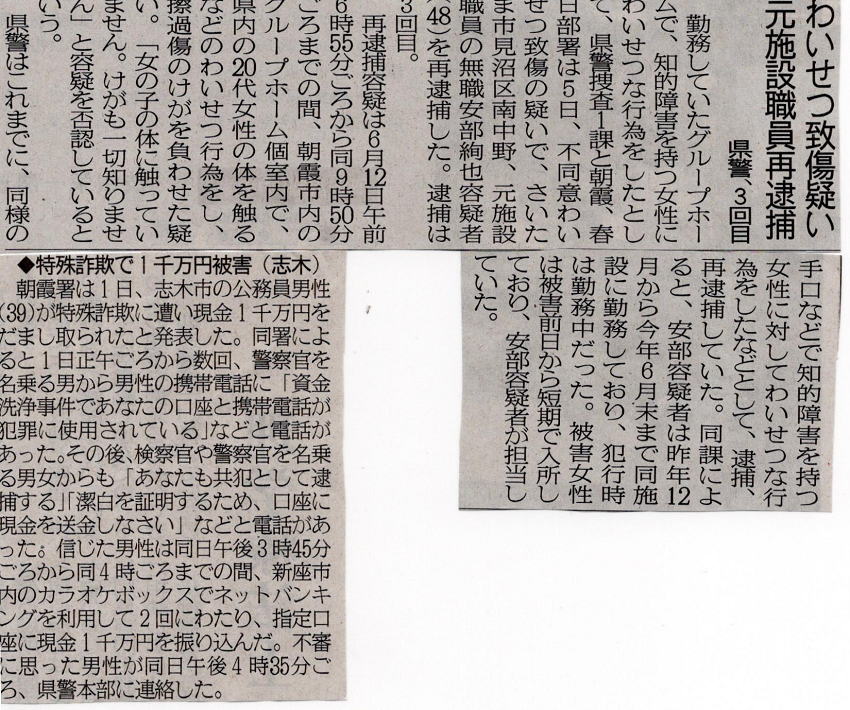 わいせつ致傷疑い
元施設職員再逮捕
県警、3回目
勤務していたグループホー
ムで、知的障害を持つ女性に
わいせつな行為をしたとし
て、県警捜査1課と朝霞、春
日部署は5日、不同意わい
せつ致傷の疑いで、さいた
ま市見沼区南中野、元施設
職員の無職安部絢也容疑者
(48)を再逮捕した。逮捕は
3回目。
再逮捕容疑は6月12日午前
6時55分ごろから同9時50分
ごろまでの間、朝霞市内の
グループホーム個室内で、
県内の20代女性の体を触る
などのわいせつ行為をし、
擦過傷のけがを負わせた疑
い。「女の子の体に触ってい
ません。けがも一切知りませ
ん」と容疑を否認していると
いう。
県警はこれまでに、同様の
手口などで知的障害を持つ
女性に対してわいせつな行
為をしたなどとして、逮捕、
再逮捕していた。同課によ
ると、安部容疑者は昨年12
月から今年6月末まで同施
設に勤務しており、犯行時
は勤務中だった。被害女性
は被害前日から短期で入所し
ており、安部容疑者が担当し
ていた。
◆特殊詐欺で1千万円被害(志木)
朝霞署は1日、志木市の公務員男性
(39)が特殊詐欺に遭い現金1千万円を
だまし取られたと発表した。同署によ
ると1日正午ごろから数回、警察官を
名乗る男から男性の携帯電話に「資金
洗浄事件であなたの口座と携帯電話が
犯罪に使用されている」などと電話が
あった。その後、検察官や警察官を名乗
る男女からも「あなたも共犯として逮
捕する」「潔白を証明するため、口座に
現金を送金しなさい」などと電話があ
った。信じた男性は同日午後3時45分
ごろから同4時ごろまでの間、新座市
内のカラオケボックスでネットバンキ
ングを利用して2回にわたり、指定口
座に現金1千万円を振り込んだ。不審
に思った男性が同日午後4時35分ご
ろ、県警本部に連絡した。